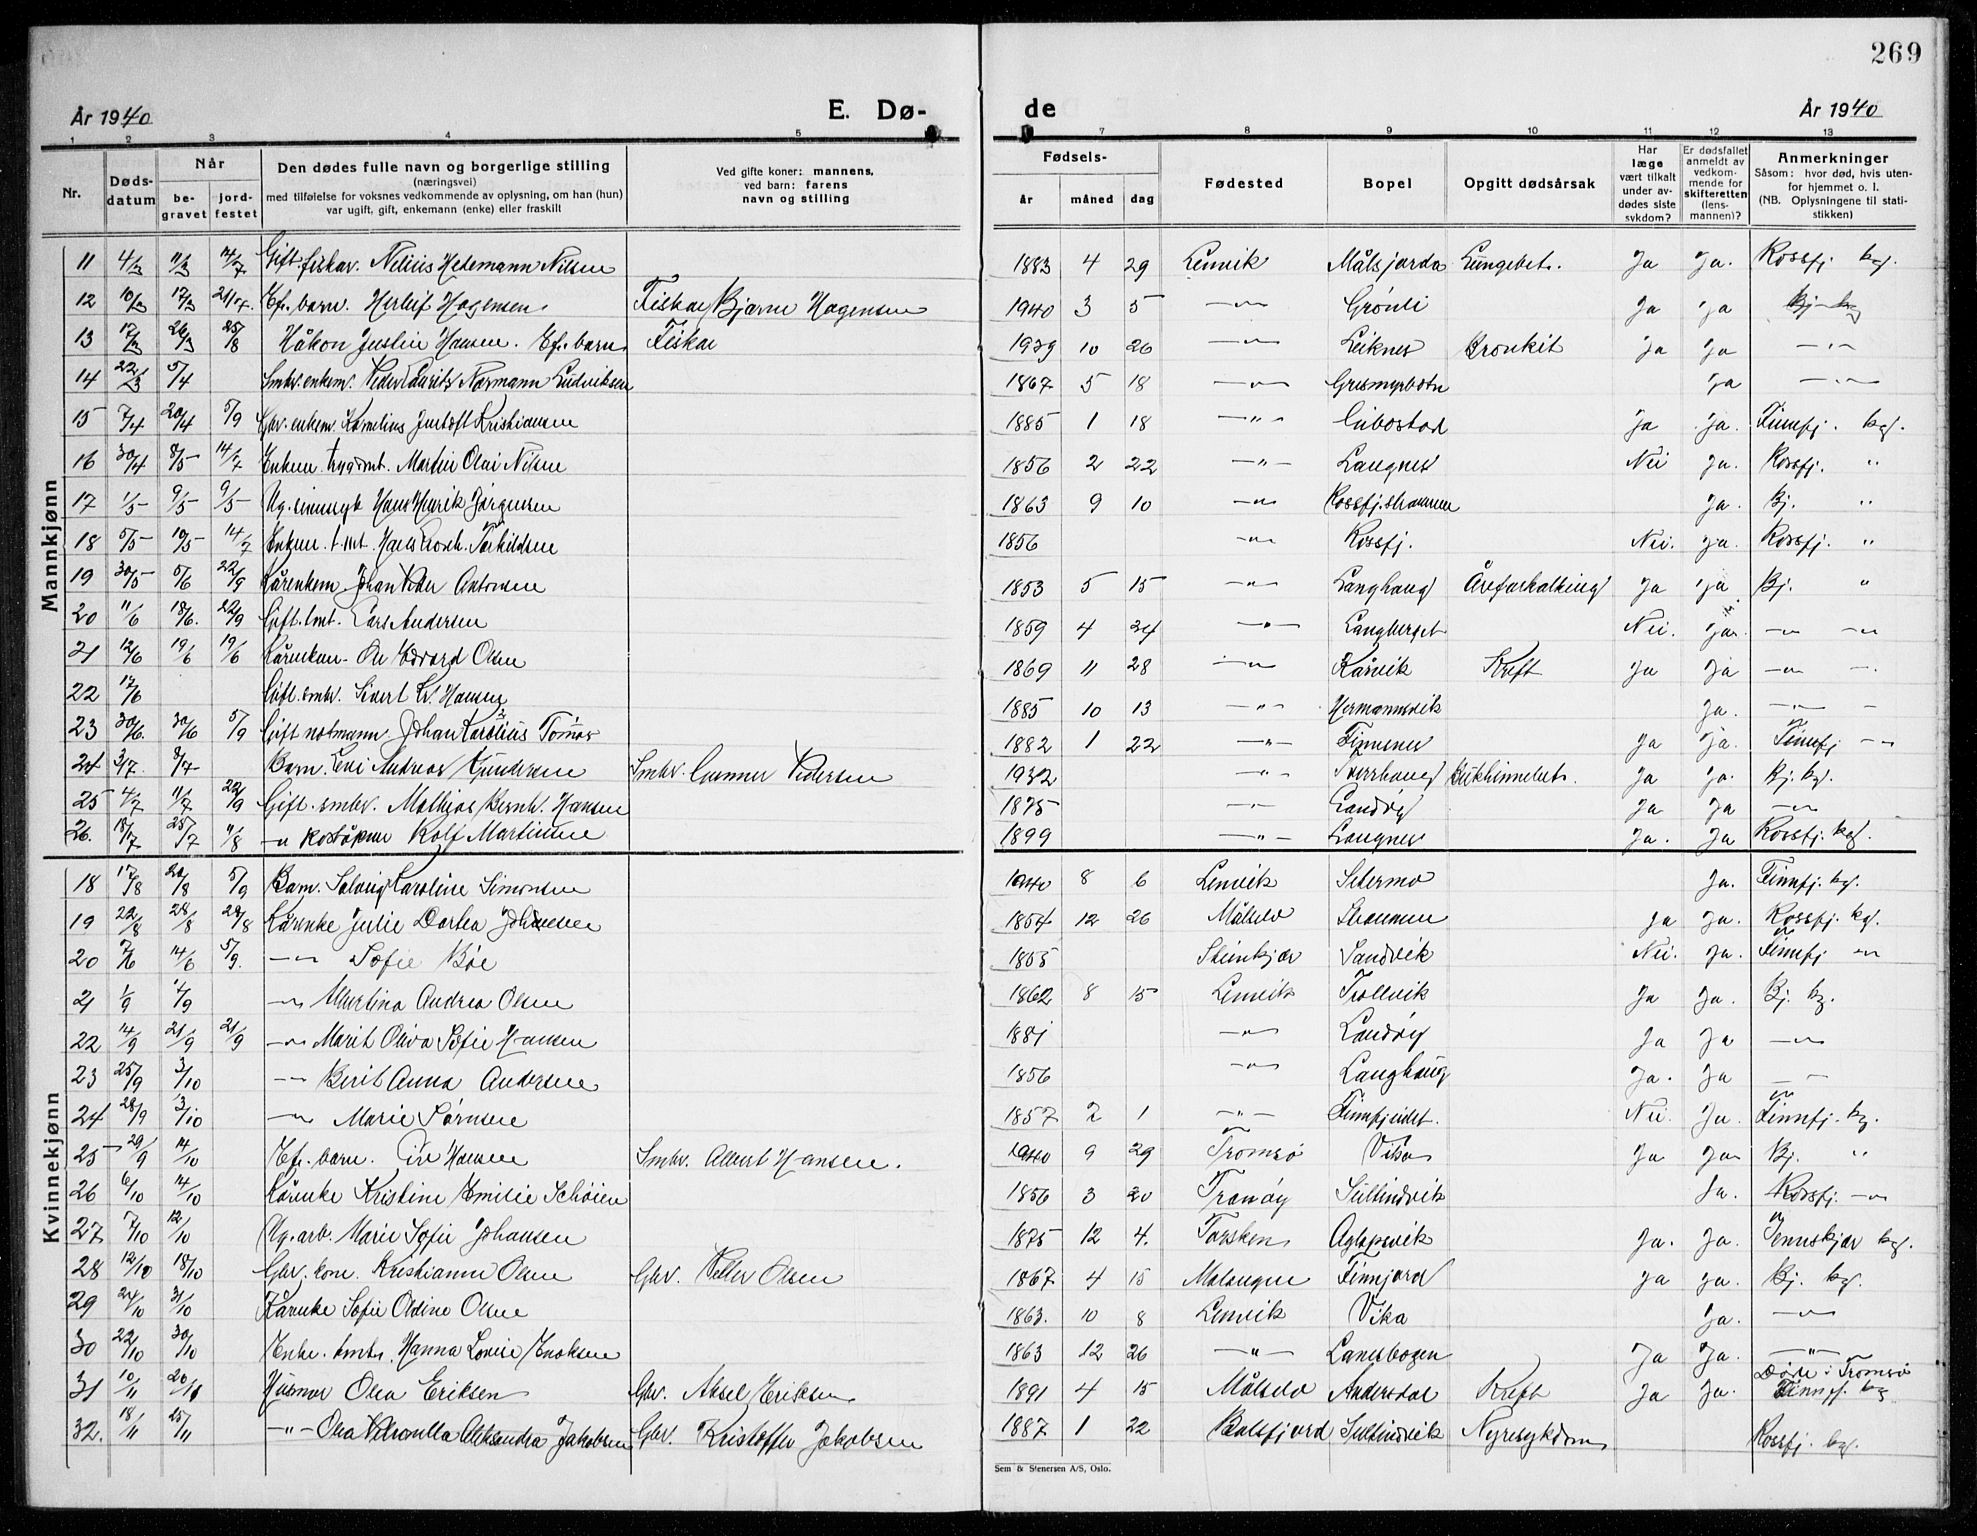 269
År 1940 E. Dø- de År 1940
1 2 3 4 5 7 8 9 10 11 12 13
Nr. Døds-datum Når be-gravet jord-festet Den dødes fulle navn og borgerlige stilling (næringsvei) med tilføielse for voksnes vedkommende av oplysning, om han (hun) var ugift, gift, enkemann (enke) eller fraskilt Ved gifte koner: mannens, ved barn: farens navn og stilling Fødsels- år måned dag Fødested Bopel Opgitt dødsårsak Har læge vært tilkalt under av-dødes siste sykdom? Er dødsfallet anmeldt av vedkom-mende for skifteretten (lens-mannen)? Anmerkninger Såsom: hvor død, hvis uten-for hjemmet o. l. (NB. Oplysningene til stati-stikken)
Mannkjønn
11 4/3 11/3 14/7 Gift fiskar. Nelius Hedemann Nilsen 1883 4 29 Lenvik Målsjorda Lungebet. Ja Ja. Rossfj. kg.
12 10/3 17/3 Ef. barn. Herleif Hagensen. Fiskar Bjarne Hagensen 1940 3 5 -"- Grönli Ja Ja Bj. kg
13 17/3 26/3 25/8 Håkon Justin Hansen. Ef. barn. Fiskar 1939 10 26 -"- Leiknes Bronkit Ja Ja -"-
14 22/3 5/4 Smbr. enkem. Peder Laurits Normann Ludviksen 1867 5 18 -"- Grasmyrbotn Ja -"-
15 7/4 20/4 5/9 Gbr. enkem. Kornelius Kristiansen 1885 1 18 -"- Gibostad Ja Ja. Finnfj. kg.
16 30/4 8/5 14/7 Enkem. trygdmt. Martin Olai Nilsen 1856 2 22 -"- Langnes Nei Ja. Rossfj. "
17 1/5 9/5 9/5 Ug. sinnsyk Hans Henrik Jörgensen 1863 9 10 -"- Rossfj.straumen Ja. Bj. "
18 5/5 10/5 14/7 Enkem. t.mt. Hans Torkildsen 1856 -"- Rossfj. Nei. Ja. Rossfj. "
19 30/5 5/6 22/9 Kårenkem. Johan Peder Antonsen 1853 5 15 -"- Langhaug Åreforkalking Ja Ja Bj. "
20 11/6 18/6. 22/9 Gift. tmt. Lars Andersen 1859 4 24 -"- Langberget Nei. Ja. -"- -"-
21 12/6 19/6 19/6 Kårenkem. Ole Edvard Olsen 1869 11 28 -"- Kårvik Kreft Ja Ja -"- -
22 17/6 Gift. smbr. Sivert Kr. Hansen 1885 10 13 -"- Hermannsvik Ja. -"- -
23 30/6. 30/6 5/9 Gift notmann. Johan Karolius Tömos 1882 1 22 -"- Finnsnes Ja Ja. Finnfj -"-
24 3/7. 8/7 Barn. Levi Andreas Gundersen Smbr. Gunnar Pedersen 1932 -"- Sverrhaug Bukhinnebet. Ja Ja. Bj. kg.
25 4/7 11/7 22/9 Gift. smbr. Mathias Bernh. Hansen 1875 -"- Landöy Ja Ja -"-
26. 18/7 25/7 11/8 -" Rolf Martinsen 1899 -"- Langnes Ja. Ja Rossfj. kg.
Kvinnekjønn
18 17/8 20/8 5/9 Barn. Solveig Karoline Simonsen 1940 8 6 Lenvik Setermo Ja. Finnfj. kg.
19 22/8 28/8 28/8 Kårenke Julie Dortea Johansen 1854 12 26 Målselv Straumen Ja Ja. Rossfj. kg.
20 7/6 14/6 5/9. -"- Sofie Böe 1855 Steinkjær Sandvik Nei. Ja. Finnfj -"-
21 1/9 -"- Martina Andrea Olsen 1862 8 15 Lenvik Trollvik Ja Ja. Bj. kg.
22 14/9 21/9 21/9 -"- Marit Oliva Sofie Hansen 1881 -"- Landöy Ja Ja -"-
23 25/9 3/10 -"- Berit Anna Andersen 1856 -"- Langhaug Ja. Ja -"-
24 28/9 3/10 -"- Marie Sörnsen 1857 2 1 -"- Finnfjeidet. Nei Ja. Finnfj. kg.
25 29/9 14/10 Ef. barn. Hansen Smbr. Albert Hansen. 1940 9 29 Tromsö Vika Ja Ja Bj. "
26 6/10 14/10 Kårenke Kristine Emilie Schöien 1856 3 20 Tranöy Sultindvik Ja. Rossfj. -"-
27 7/10 12/10 Ug. arb. Marie Sofie Johansen 1875 12 4. Torsken Aglapsvik Ja. Ja. Jennskjær kg.
28 12/10 18/10 Gbr. kone. Kristianna Olsen Gbr. Peller Olsen 1867 4 15 Malangen Finnjord Ja Ja. Bj. kg.
29 24/10 31/10 Kårenke Sofie Oldine Olsen 1863. 10 8 Lenvik Vika Ja. -"-
30 22/10 30/10 Enke. Hanna Lovise Enoksen 1863 12 26 -"- Lanesbogen Ja Ja. -"-
31 10/11 20/11 Husmor Olea Eriksen Gbr. Aksel Eriksen 1891 4 15 Målselv Andersdal Kreft Ja Ja. Döde i Tromsö Finnfj. kg
32. 18/11 25/11 -"- Olea Aleksandra Jakobsen Gbr. Kristoffer Jakobsen 1887 1 22 Balsfjord Sultindvik Nyresykdom Rossfj. kg.
Sem & Stenersen A/S, Oslo.